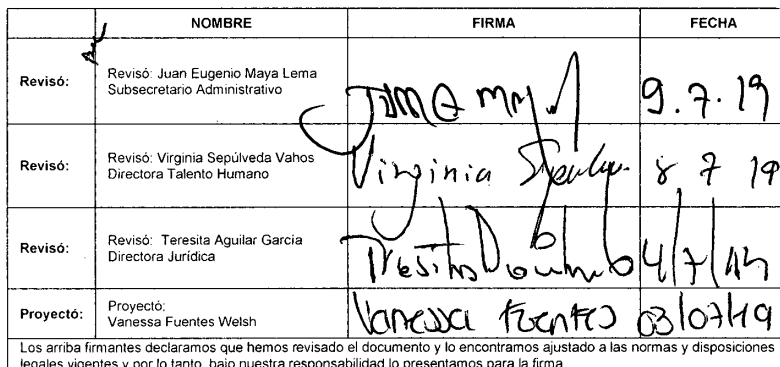 NOMBRE FIRMA FECHA
Revisó: Revisó: Juan Eugenio Maya Lema
Subsecretario Administrativo
9.7.19
Revisó: Revisó: Virginia Sepúlveda Vahos
Directora Talento Humano
Virginia 8 7 19
Revisó: Revisó: Teresita Aguilar García
Directora Jurídica
4/7/19
Proyectó: Proyectó:
Vanessa Fuentes Welsh
Vanessa Fuentes 03/07/19
Los arriba firmantes declaramos que hemos revisado el documento y lo encontramos ajustado a las normas y disposiciones
legales vigentes y por lo tanto, bajo nuestra responsabilidad lo presentamos para la firma